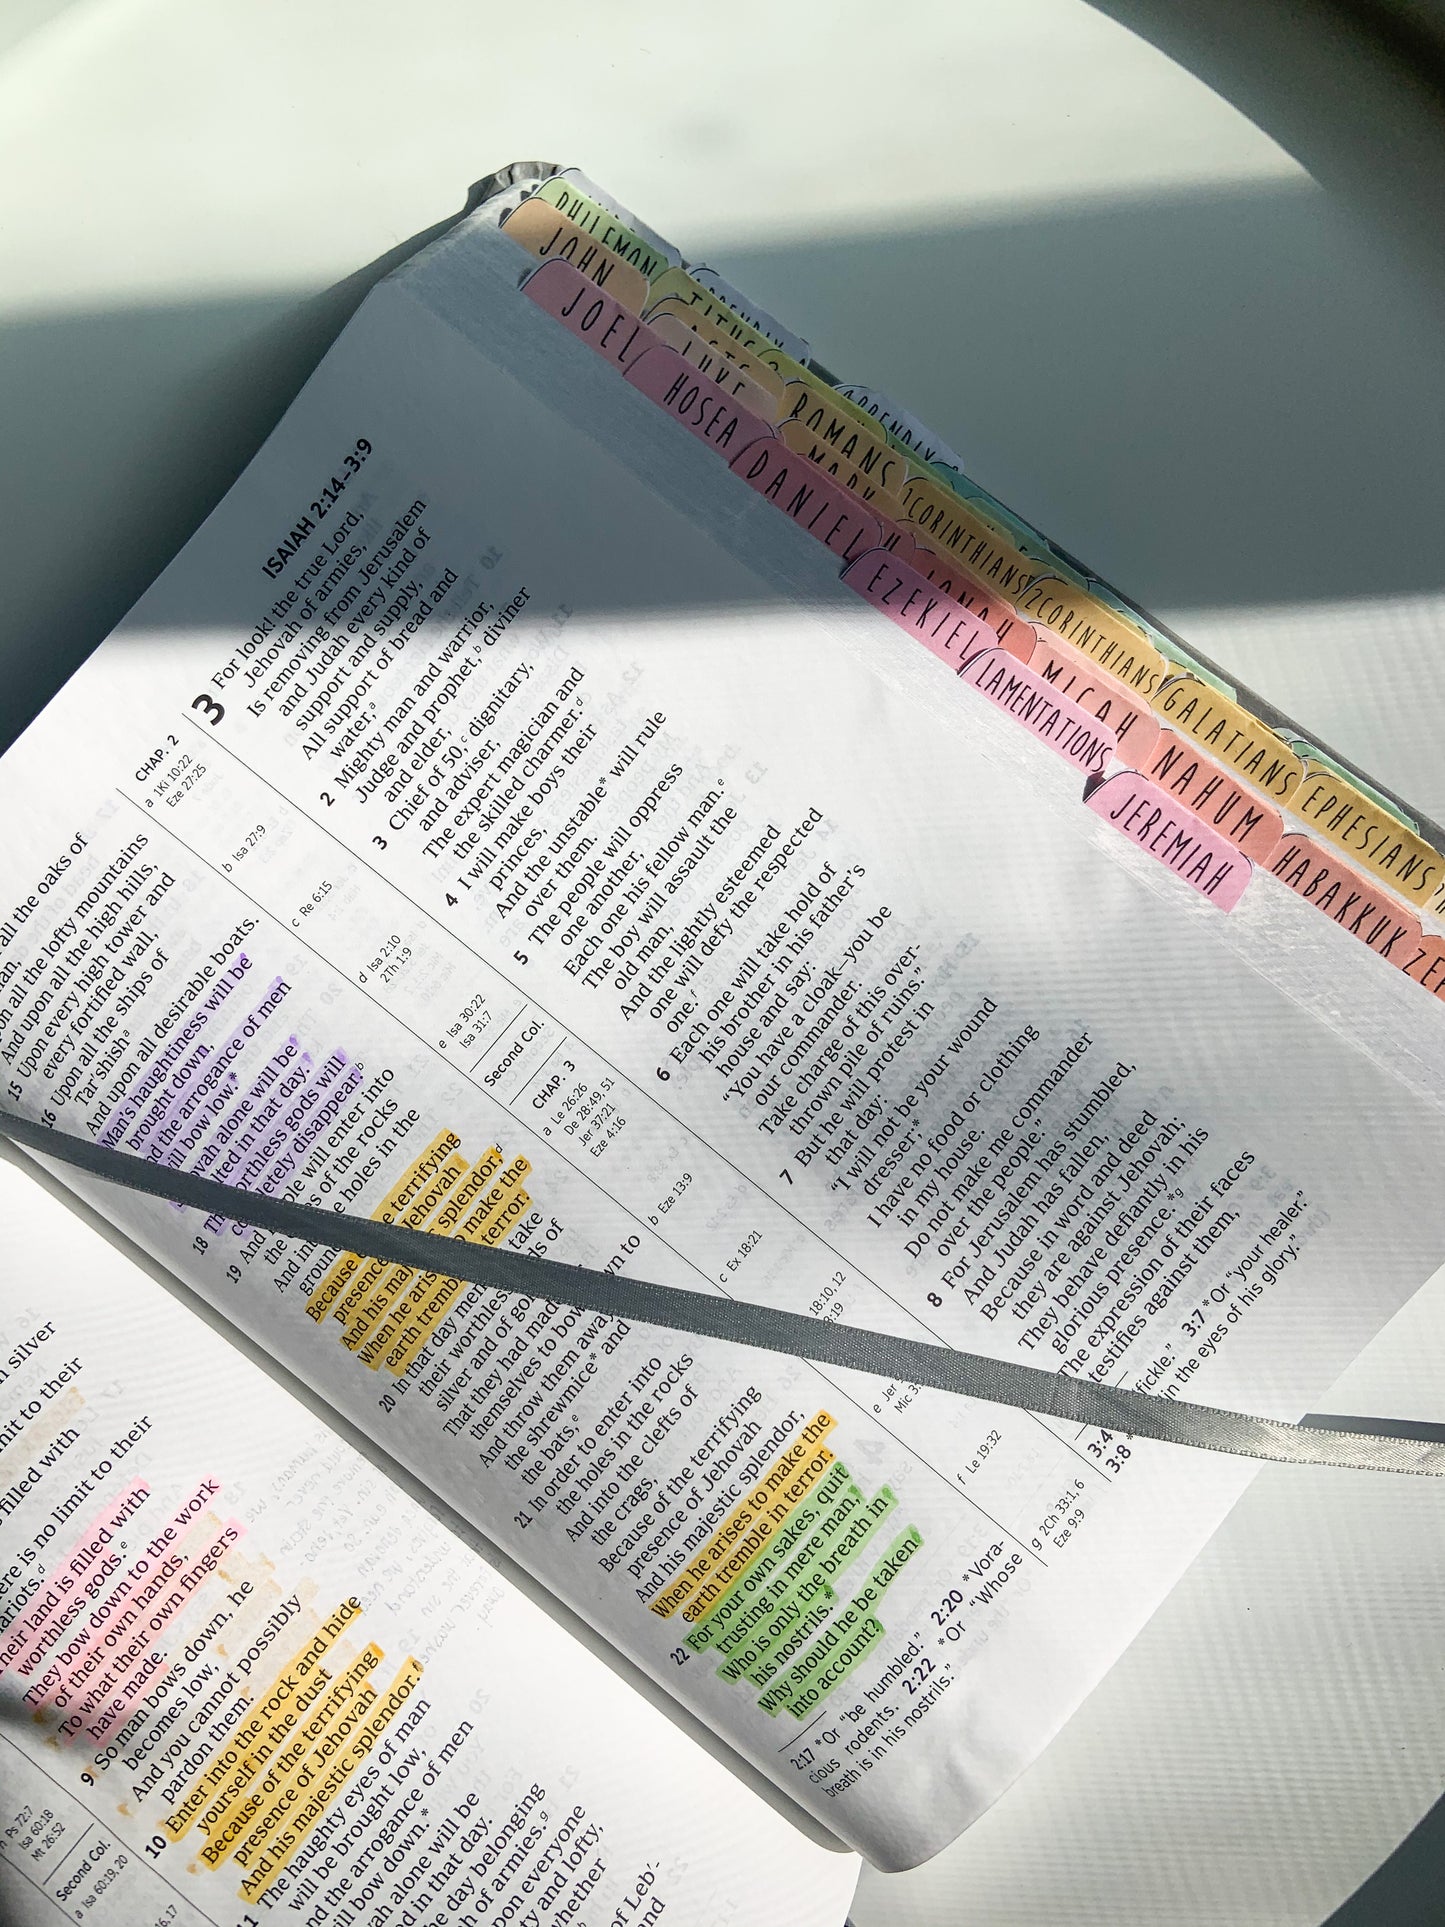 PHILEMON
JOHN
JOEL
TITUS
ACTS
LUKE
HOSEA
APPENDIX
ROMANS
MARK
DANIEL
1CORINTHIANS
JONAH
EZEKIEL
2CORINTHIANS
MICAH
LAMENTATIONS
GALATIANS
NAHUM
JEREMIAH
EPHESIANS
HABAKKUK
ISAIAH 2:14–3:9
all the oaks of
on all the lofty mountains
And upon all the high hills,
15 Upon every high tower and
every fortified wall,
16 Upon all the ships of
Tarʹshish a
And upon all desirable boats.
Man's haughtiness will be
brought down,
the arrogance of men
will bow low.*
alone will be
in that day.
18 The worthless gods will
completely disappear. b
19 And will enter into
the of the rocks
And into the holes in the
ground,
Because terrifying
presence Jehovah
And his splendor, d
When he arises make the
earth tremble terror.
20 In that day men take
their worthless of
silver and of
That they had made
themselves to bow down to
And throw them away to
the shrewmice* and
the bats, e
21 In order to enter into
the holes in the rocks
And into the clefts of
the crags,
Because of the terrifying
presence of Jehovah
And his majestic splendor,
When he arises to make the
earth tremble in terror.
22 For your own sakes, quit
trusting in mere man,
Who is only the breath in
his nostrils.*
Why should he be taken
into account?
2:17 *Or “be humbled.” 2:20 *Vora-
cious rodents. 2:22 *Or “Whose
breath is in his nostrils.”
CHAP. 2
a 1Ki 10:22
Eze 27:25
b Isa 27:9
c Re 6:15
d Isa 2:10
2Th 1:9
e Isa 30:22
Isa 31:7
Second Col.
CHAP. 3
a Le 26:26
De 28:49, 51
Jer 37:21
Eze 4:16
b Eze 13:9
c Ex 18:21
18:10, 12
e Jer
Mic
f Le 19:32
g 2Ch 33:1, 6
Eze 9:9
3 For look! the true Lord,
Jehovah of armies,
Is removing from Jerusalem
and Judah every kind of
support and supply,
All support of bread and
water, a
2 Mighty man and warrior,
Judge and prophet, b diviner
and elder,
3 Chief of 50, c dignitary,
and adviser,
The expert magician and
the skilled charmer. d
4 I will make boys their
princes,
And the unstable* will rule
over them.
5 The people will oppress
one another,
Each one his fellow man. e
The boy will assault the
old man,
And the lightly esteemed
one will defy the respected
one. f
6 Each one will take hold of
his brother in his father's
house and say:
“You have a cloak—you be
our commander.
Take charge of this over-
thrown pile of ruins.”
7 But he will protest in
that day:
“I will not be your wound
dresser;*
I have no food or clothing
in my house.
Do not make me commander
over the people.”
8 For Jerusalem has stumbled,
And Judah has fallen,
Because in word and deed
they are against Jehovah;
They behave defiantly in his
glorious presence.* g
The expression of their faces
testifies against them,
3:4 fickle.” 3:7 *Or “your healer.”
3:8 * in the eyes of his glory.”
silver
limit to their
filled with
there is no limit to their
chariots. d
Their land is filled with
worthless gods. e
They bow down to the work
of their own hands,
To what their own fingers
have made.
9 So man bows down, he
becomes low,
And you cannot possibly
pardon them.
10 Enter into the rock and hide
yourself in the dust
Because of the terrifying
presence of Jehovah
And his majestic splendor. f
11 The haughty eyes of man
will be brought low,
And the arrogance of men
will bow down.*
alone will be
in that day.
the day belonging
of armies. g
upon everyone
and lofty,
whether
of Lebʹ-
and
Ps 72:7
Isa 60:18
Mt 26:52
Second Col.
a Isa 60:19, 20